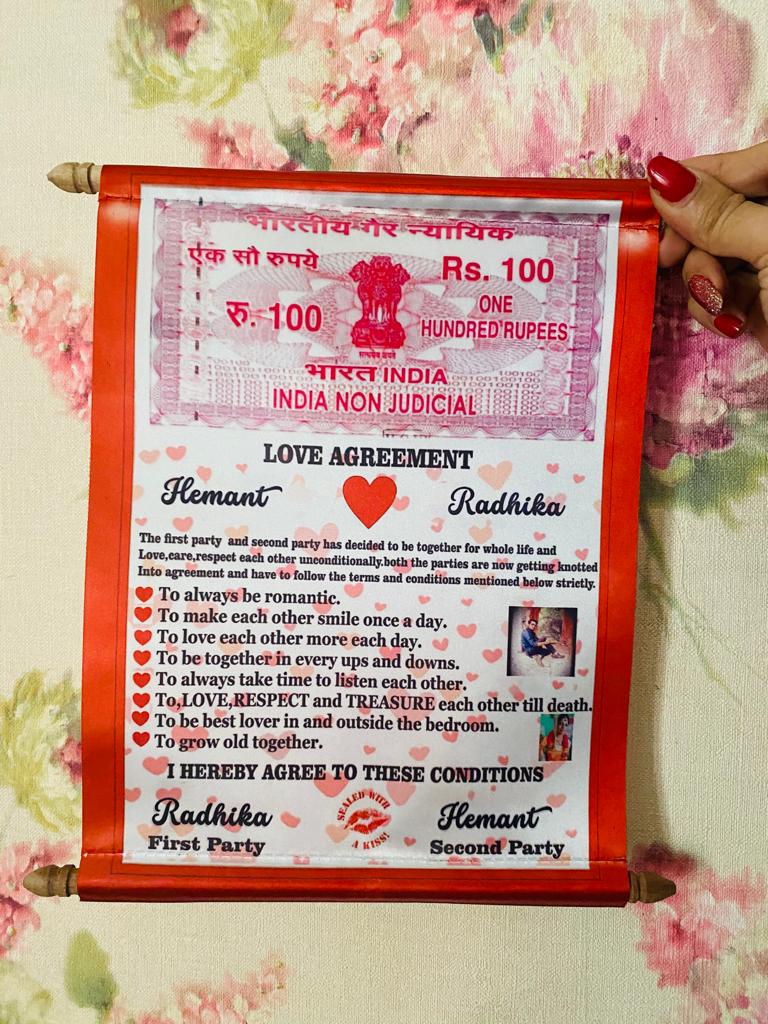 भारतीय गैर न्यायिक
एक सौ रुपये
Rs. 100
रु. 100
ONE
HUNDRED RUPEES
सत्यमेव जयते
भारत INDIA
INDIA NON JUDICIAL
LOVE AGREEMENT
Hemant
Radhika
The first party and second party has decided to be together for whole life and
Love,care,respect each other unconditionally.both the parties are now getting knotted
Into agreement and have to follow the terms and conditions mentioned below strictly.
To always be romantic.
To make each other smile once a day.
To love each other more each day.
To be together in every ups and downs.
To always take time to listen each other.
To,LOVE,RESPECT and TREASURE each other till death.
To be best lover in and outside the bedroom.
To grow old together.
I HEREBY AGREE TO THESE CONDITIONS
Radhika
First Party
SEALED WITH
A KISS!
Hemant
Second Party